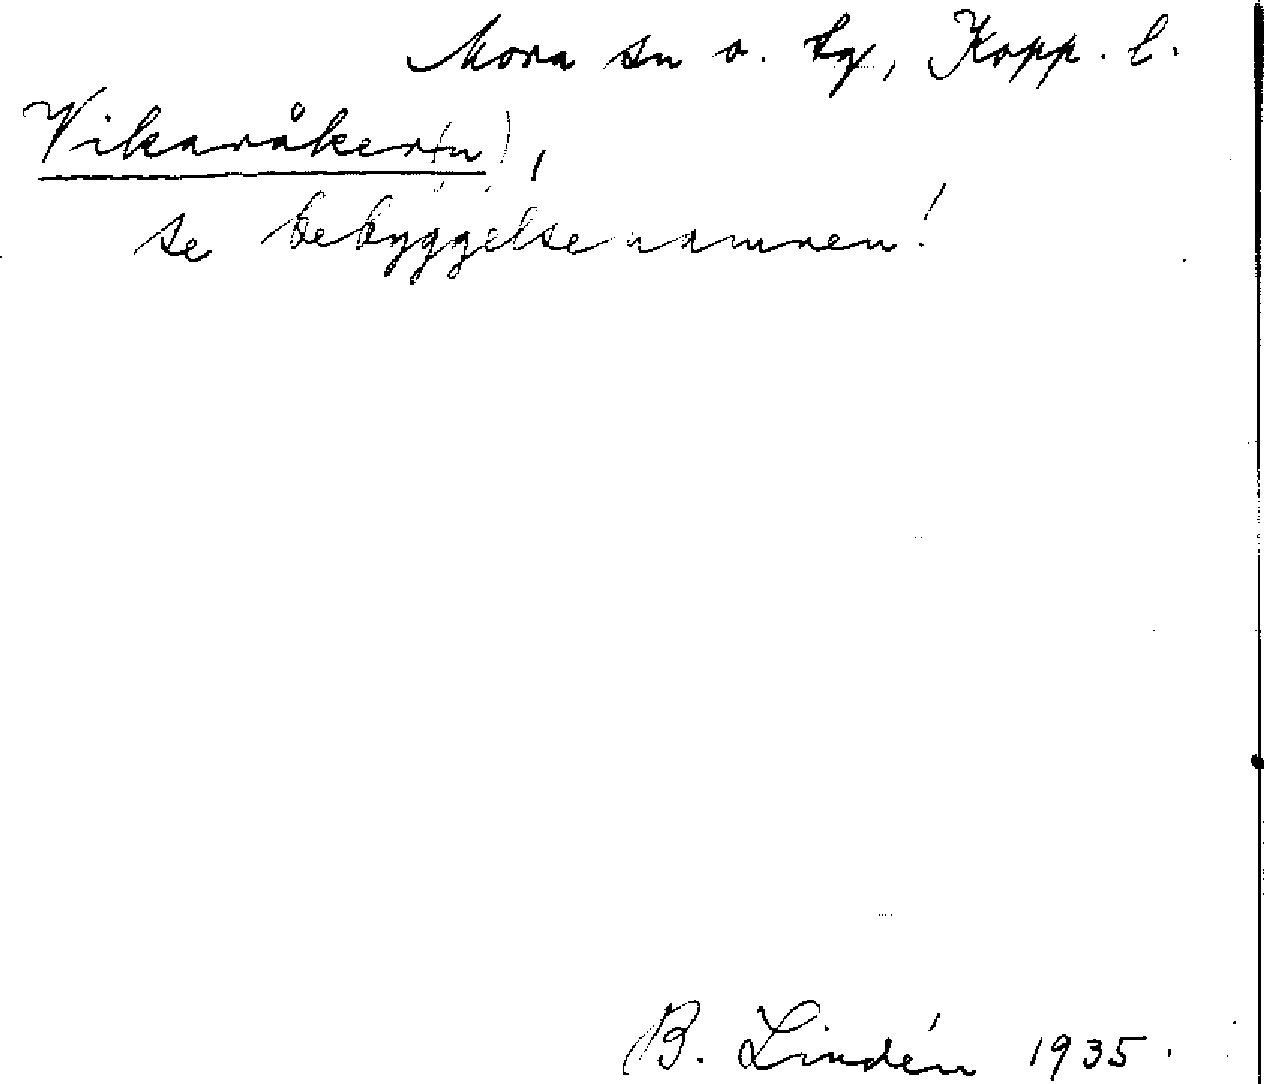 Mora sn o. tg, Kopp. l.
Vikaråker(n),
se bebyggelsenamnen!
B. Lindén 1935.